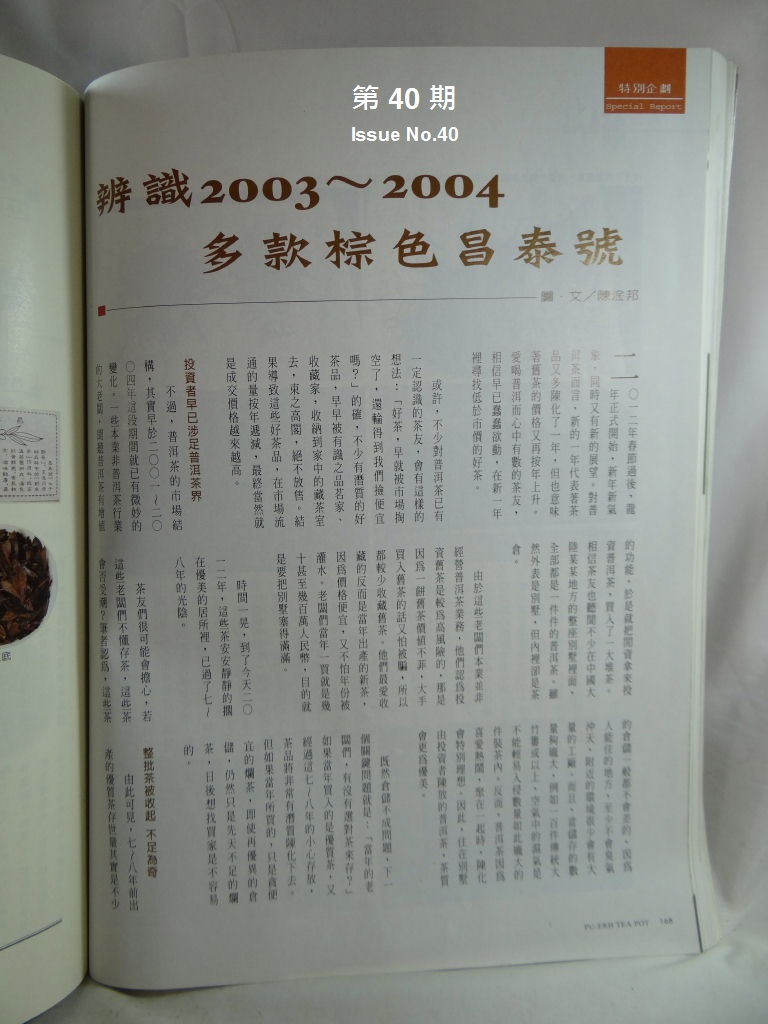 第 40 期
Issue No.40
特別企劃
Special Report
辨識2003～2004
多款棕色昌泰號
圖．文／陳淦邦
二〇一二年春節過後，龍
年正式開始，新年新氣
象，同時又有新的展望。對普
洱茶而言，新的一年代表著茶
品又多陳化了一年，但也意味
著舊茶的價格又再按年上升。
愛喝普洱而心中有數的茶友，
相信早已蠢蠢欲動，在新一年
裡尋找低於市價的好茶。
或許，不少對普洱茶已有
一定認識的茶友，會有這樣的
想法：「好茶，早就被市場掏
空了，還輪得到我們撿便宜
嗎？」的確，不少有潛質的好
茶品，早早被有識之品茗家、
收藏家，收納到家中的藏茶室
去，束之高閣，絕不放售。結
果導致這些好茶品，在市場流
通的量按年遞減，最終當然就
是成交價格越來越高。
投資者早已涉足普洱茶界
不過，普洱茶的市場結
構，其實早於二〇〇一～二〇
〇四年這段期間就已有微妙的
變化。一些本業非普洱茶行業
的大老闆，聞聽普洱茶有增值
的功能，於是就把閒資拿來投
資普洱茶，買入了一大堆茶。
相信茶友也聽聞不少在中國大
陸某某地方的整座別墅裡面，
全部都是一件件的普洱茶。雖
然外表是別墅，但內裡卻是茶
倉。
由於這些老闆們本業並非
經營普洱茶業務，他們認為投
資舊茶是較為高風險的，那是
因為一餅舊茶價值不菲，大手
買入舊茶的話又怕被騙，所以
都較少收藏舊茶。他們最愛收
藏的反而是當年出產的新茶，
因為價格便宜，又不怕年份被
灌水。老闆們當年一買就是幾
十甚至幾百萬人民幣，目的就
是要把別墅塞得滿滿。
時間一晃，到了今天二〇
一二年，這些茶安安靜靜的擱
在優美的居所裡，已過了七～
八年的光陰。
茶友們很可能會擔心，若
這些老闆們不懂存茶，這些茶
會否受潮？筆者認為，這些茶
的倉儲一般都不會差的，因為
人能住的地方，至少不會臭氣
沖天，附近的環境很少會有大
量的工廠。而且，當儲存的數
量夠龐大，例如一百件傳統大
竹簍或以上，空氣中的濕氣是
不能輕易入侵數量如此龐大的
件裝茶內。反而，普洱茶因為
喜愛熱鬧，聚在一起時，陳化
會特別理想。因此，往往在別墅
由投資者陳放的普洱茶，茶質
會更為優美。
既然倉儲不成問題，下一
個關鍵問題就是：「當年的老
闆們，有沒有選對茶來存？」
如果當年買入的是優質茶，又
經過這七～八年的小心存放，
茶品將非常有潛質陳化下去。
但如果當年所買的，只是貪便
宜的爛茶，即使再優異的倉
儲，仍然只是先天不足的爛
茶，日後想找買家是不容易
的。
整批茶被收起 不足為奇
由此可見，七～八年前出
產的優質茶存世量其實是不少
PU-ERH TEA POT 168
底